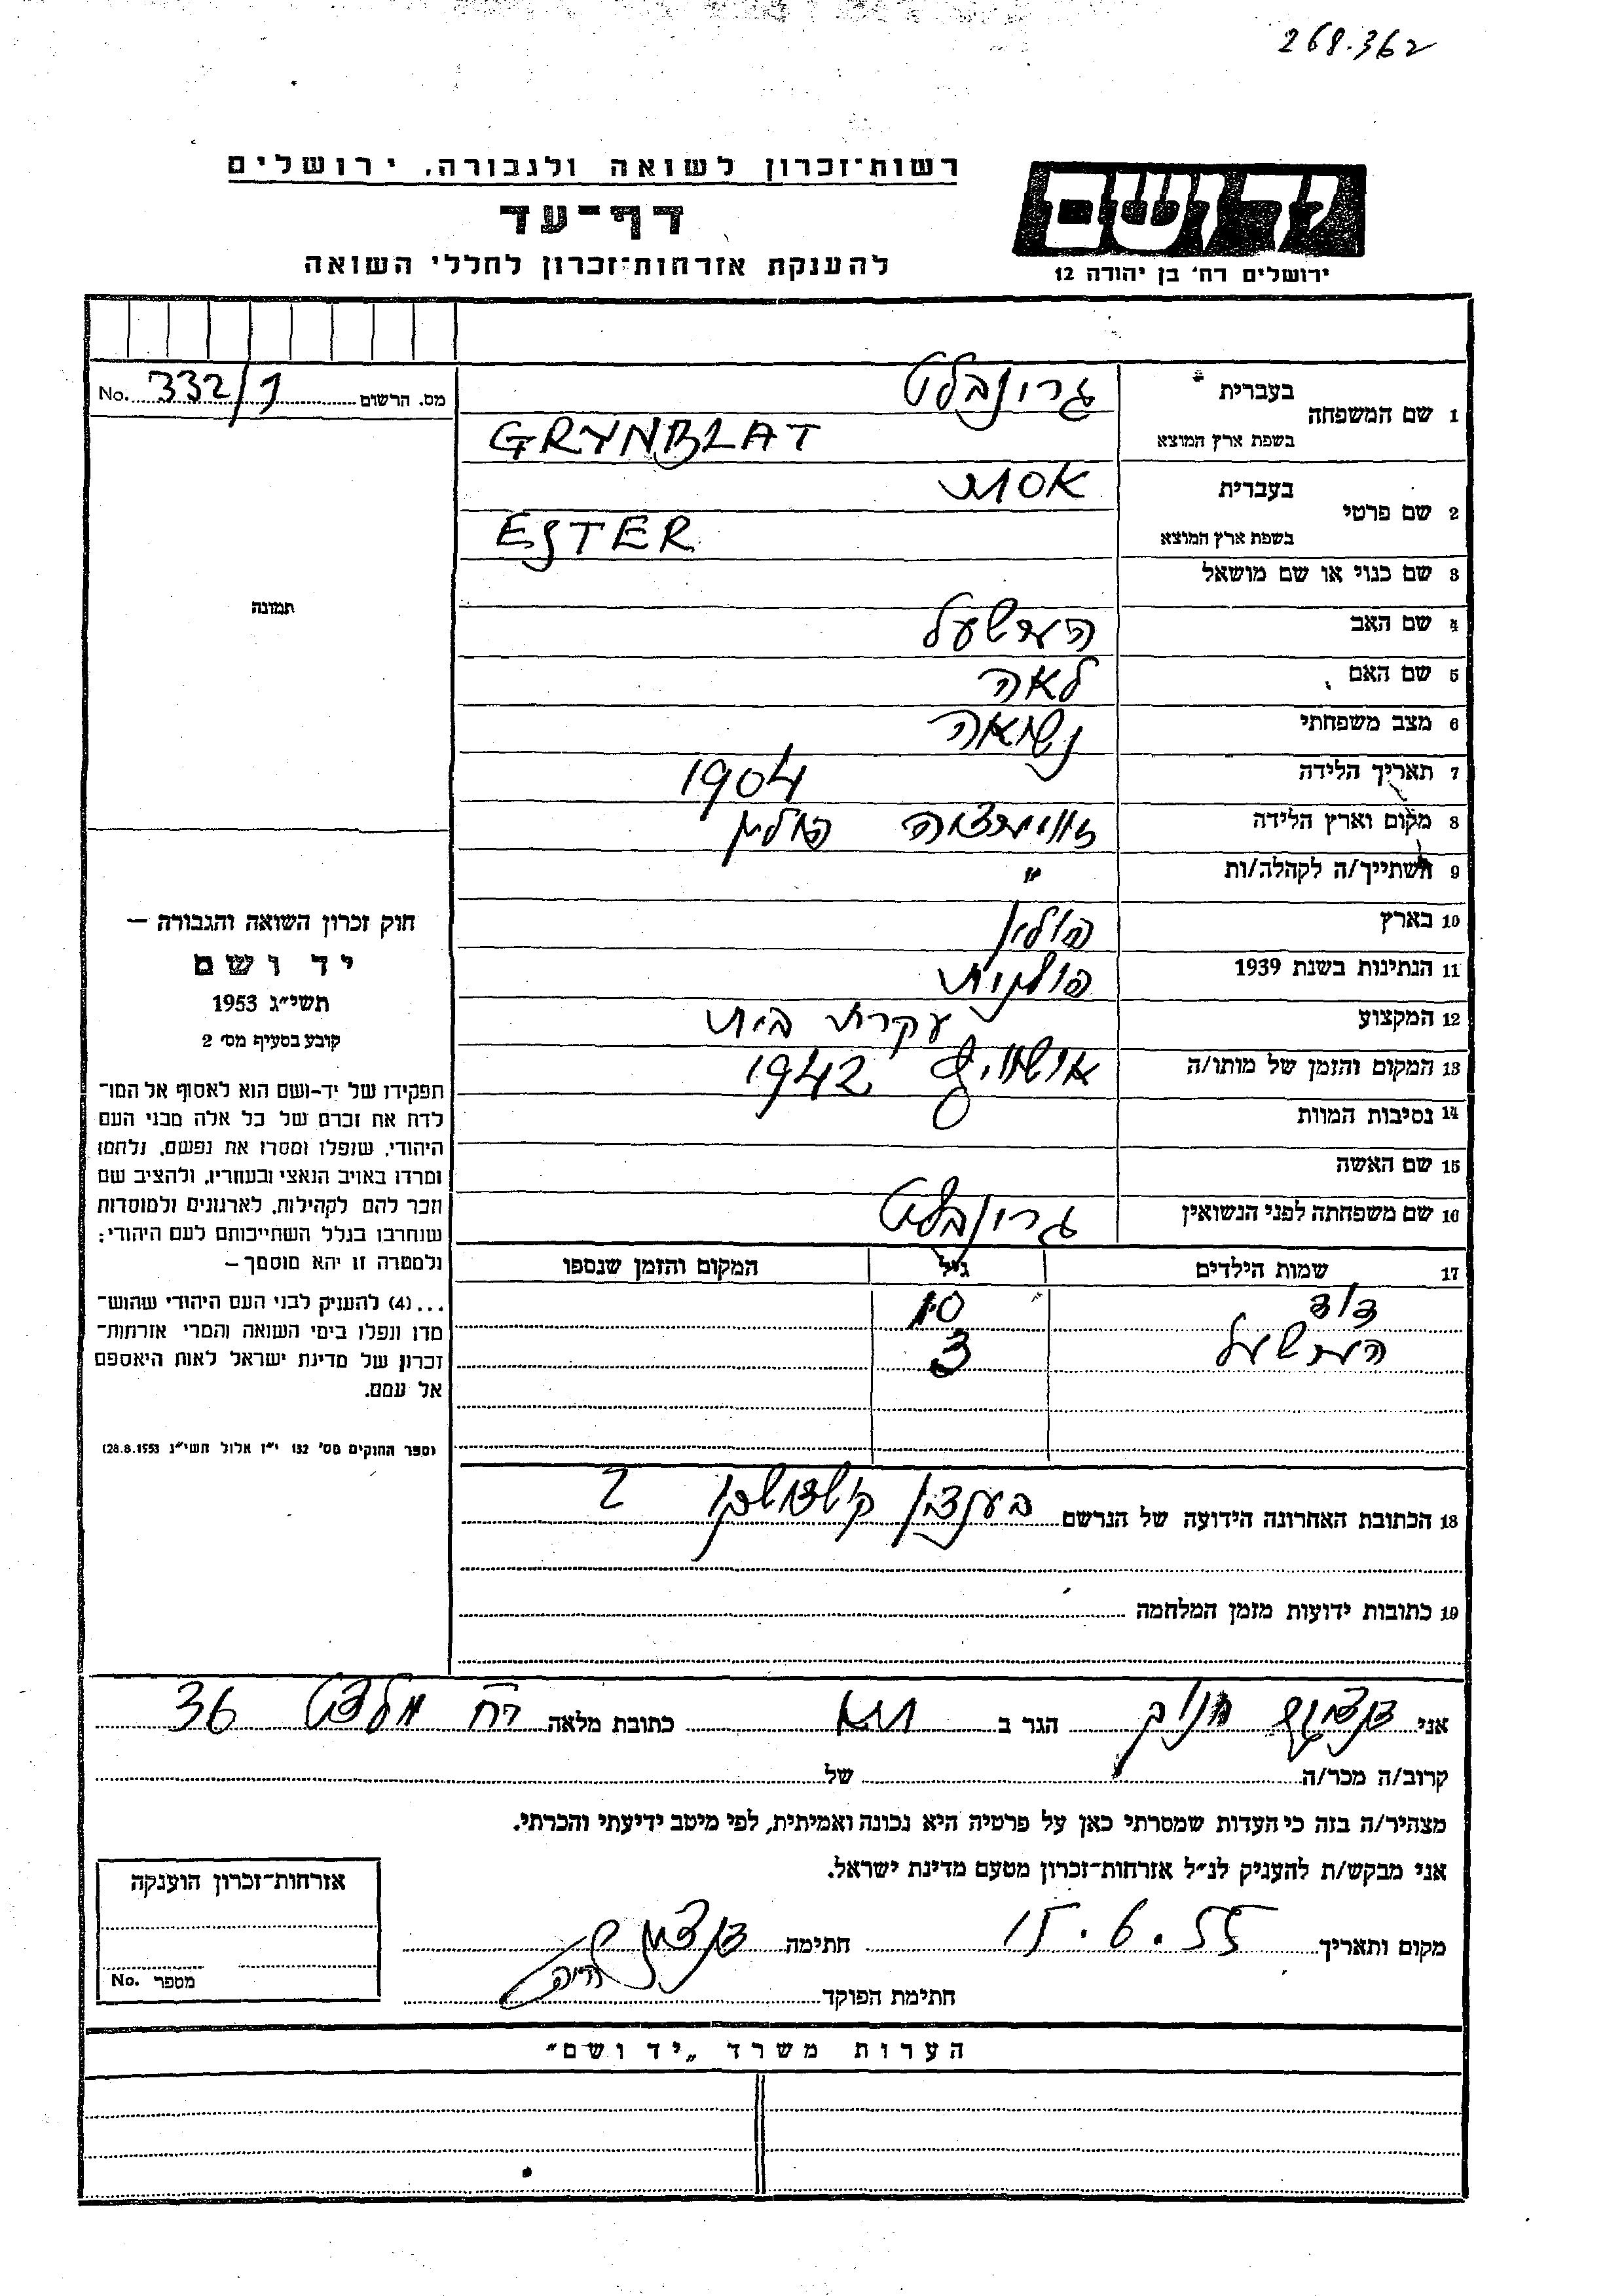 268.362
רשות־זכרון לשואה ולגבורה, ירושלים
דף־עד
להענקת אזרחות־זכרון לחללי השואה
יד ושם
ירושלים רח' בן יהודה 12
מס. הרשום 332/1 No.
1 שם המשפחה
בעברית גרינבלט
בשפת ארץ המוצא GRYNBLAT
2 שם פרטי
בעברית אסתר
בשפת ארץ המוצא ESTER
3 שם כנוי או שם מושאל
4 שם האב הערשעל
5 שם האם לאה
6 מצב משפחתי נשואה
7 תאריך הלידה 1904
8 מקום וארץ הלידה פולין
9 השתייך/ה לקהלה/ות "
10 בארץ פולין
11 הנתינות בשנת 1939 פולנית
12 המקצוע עקרת בית
13 המקום והזמן של מותו/ה אושוויץ 1942
14 נסיבות המוות
15 שם האשה
16 שם משפחתה לפני הנשואין גרינבלט
17 שמות הילדים גיל המקום והזמן שנספו
דוד 10
הערשעל 3
18 הכתובת האחרונה הידועה של הנרשם בענדין 2
19 כתובות ידועות מזמן המלחמה
תמונה
חוק זכרון השואה והגבורה –
יד ושם
תשי"ג 1953
קובע בסעיף מס' 2
תפקידו של יד-ושם הוא לאסוף אל המו־
לדת את זכרם של כל אלה מבני העם
היהודי, שנפלו ומסרו את נפשם, נלחמו
ומרדו באויב הנאצי ובעוזריו, ולהציב שם
וזכר להם לקהילות, לארגונים ולמוסדות
שנחרבו בגלל השתייכותם לעם היהודי;
ולמטרה זו יהא מוסמך –
...(4) להעניק לבני העם היהודי שהוש־
מדו ונפלו בימי השואה והמרי אזרחות־
זכרון של מדינת ישראל לאות היאספם
אל עמם.
(ספר החוקים מס' 132 י"ז אלול תשי"ג 28.8.1953)
אני הגר ב ת״א כתובת מלאה רח 36
קרוב/ה מכר/ה של
מצהיר/ה בזה כי העדות שמסרתי כאן על פרטיה היא נכונה ואמיתית, לפי מיטב ידיעתי והכרתי.
אני מבקש/ת להעניק לנ"ל אזרחות־זכרון מטעם מדינת ישראל.
מקום ותאריך 15.6.55 חתימה
חתימת הפוקד
אזרחות־זכרון הוענקה
מספר No.
הערות משרד „יד ושם"